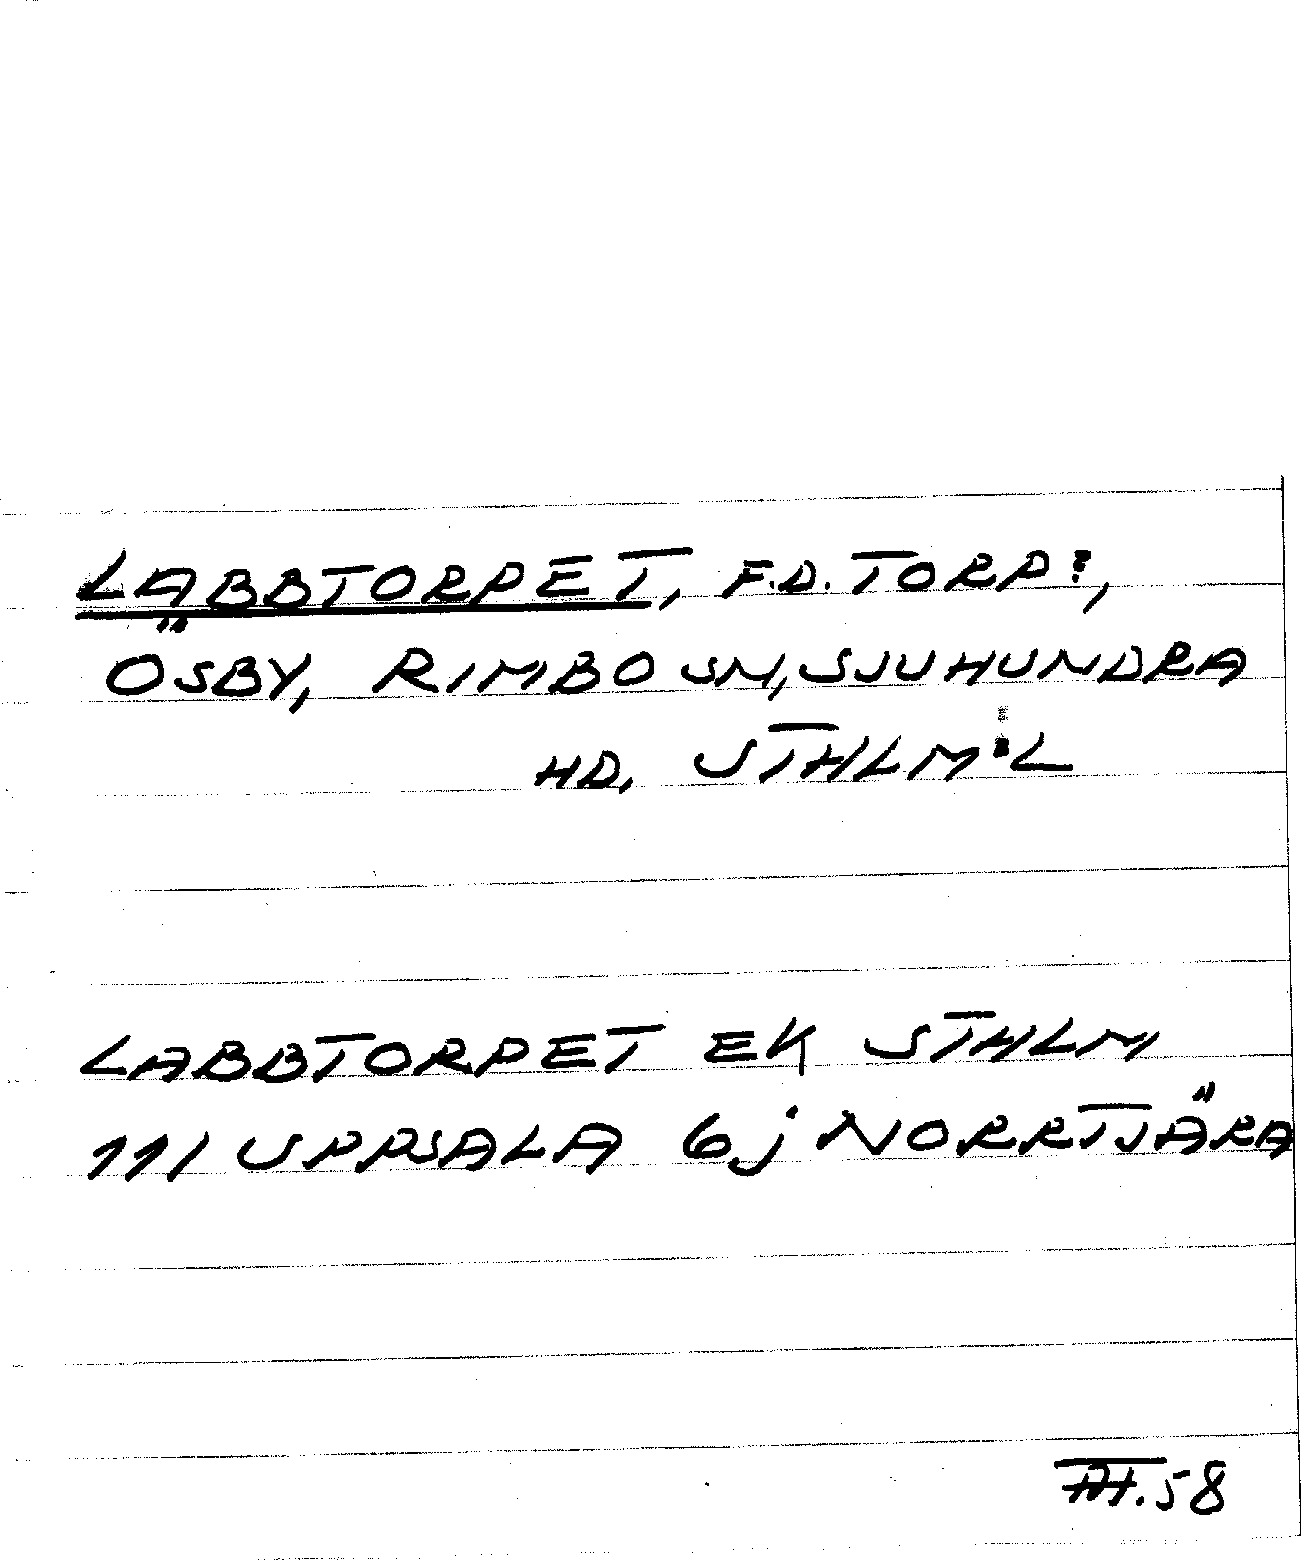 LABBTORPET, F.D. TORP?,
ÖSBY, RIMBO SN, SJUHUNDRA
HD, STHLM:L
LABBTORPET EK STHLM
111 UPPSALA 6j NORRTJÄRA
58